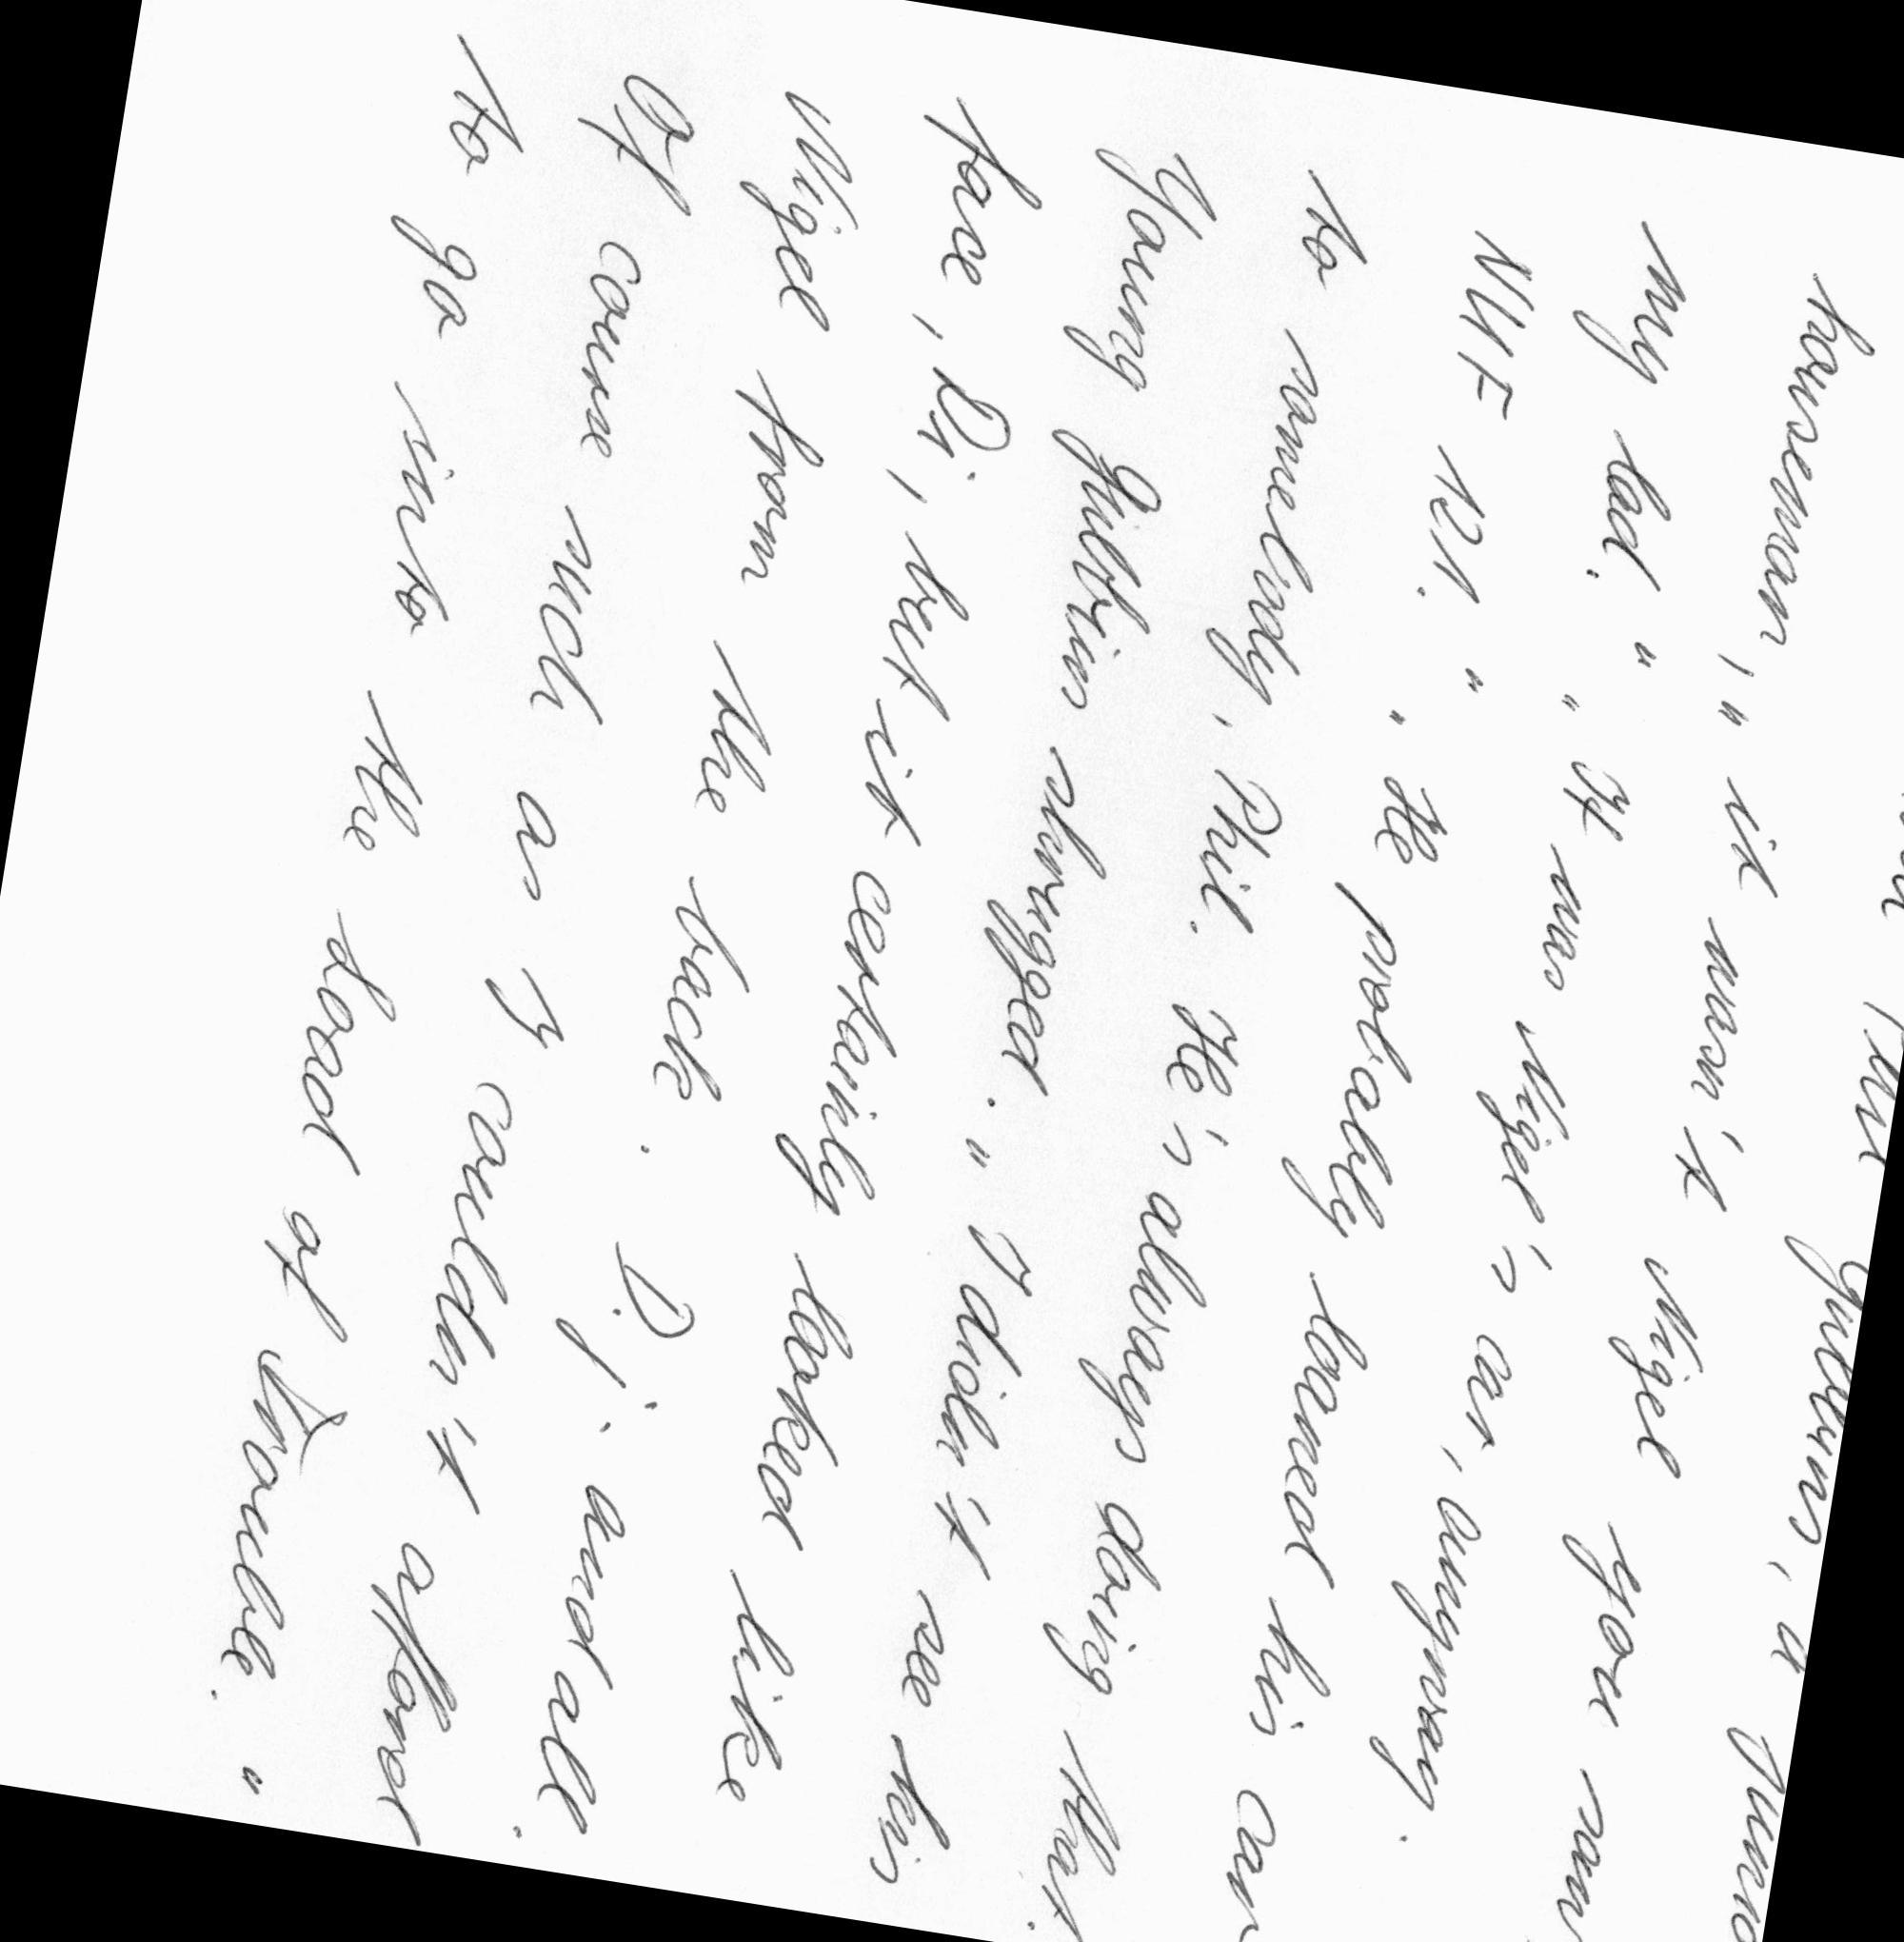 houseman," it wasn't Nigel you saw
my lad." "It was Nigel's car, anyway.
NUF 121." "He probably loaned his car
to somebody, Phil. He's always doing that.
Young shrugged. "I didn't see his
face, Di, but it certainly looked like
Nigel from the back. D.J. and all.
Of course such as I couldn't afford
to go into the load of trouble."